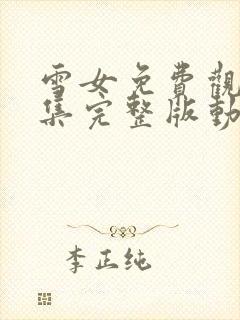 雪女免費觀
集完整版動
李正纯